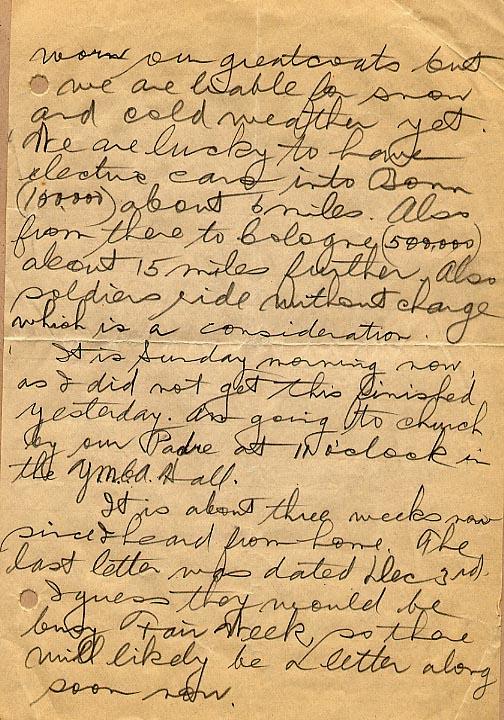 worn our greatcoats but
we are liable for snow
and cold weather yet.
We are lucky to have
electric cars into Bonn
(100,000) about 6 miles. Also
from there to Cologne (500,000)
about 15 miles further. Also
soldiers ride without charge
which is a consideration.
It is Sunday morning now,
as I did not get this finished
yesterday. Am going to church
by our Padre at o'clock in
the Y.M.C.A. Hall.
It is about three weeks now
since I heard from home. The
last letter was dated Dec 3rd.
I guess they would be
busy Fair Week, so there
will likely be a letter along
soon now.